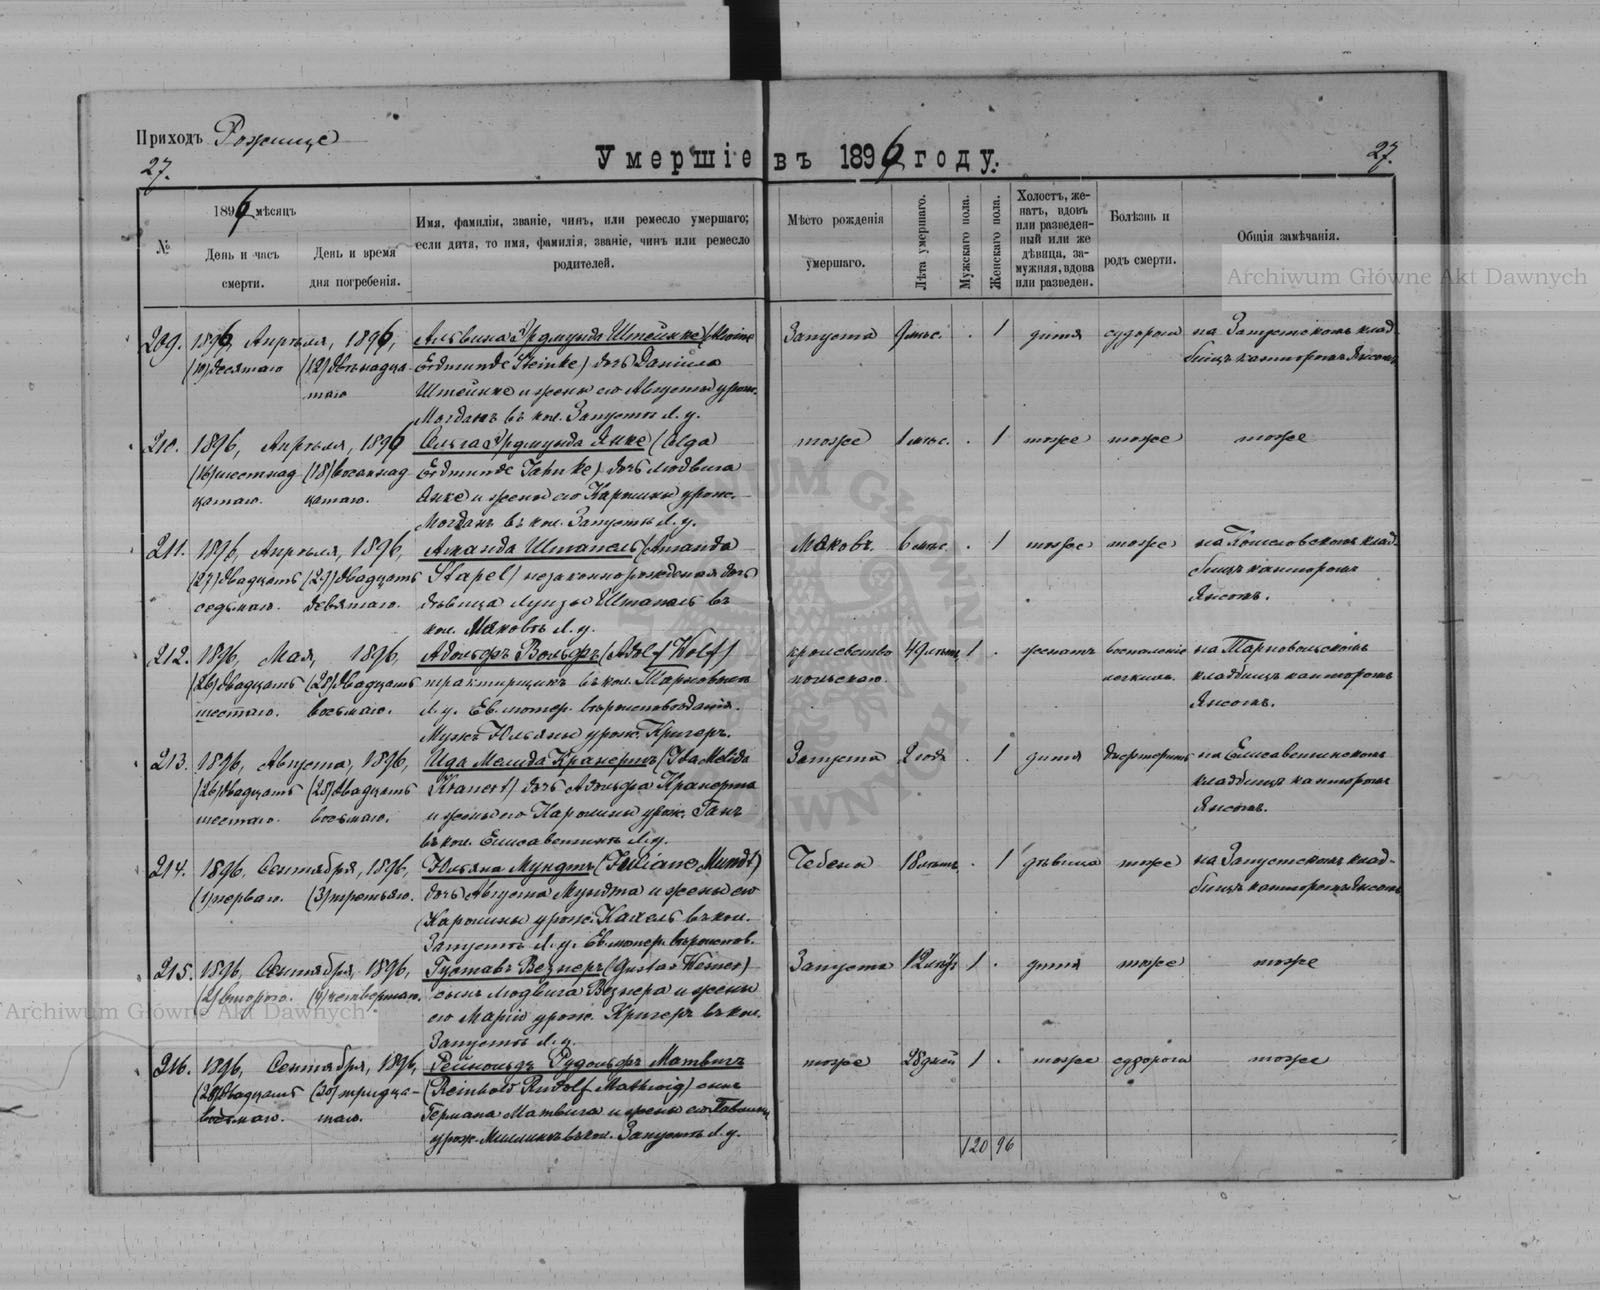 Приходъ Рожище
27.
Умершіе въ 1896 году.
27.
№
1896 мѣсяцъ
День и часъ
смерти.
День и время
дня погребенія.
Имя, фамилія, званіе, чинъ, или ремесло умершаго;
если дитя, то имя, фамилія, званіе, чинъ или ремесло
родителей.
Мѣсто рожденія
умершаго.
Лѣта умершаго.
Мужскаго пола.
Женскаго пола.
Холостъ, же-
натъ, вдовъ
или разведен-
ный или же
дѣвица, за-
мужняя, вдова
или разведен.
Болѣзнь и
родъ смерти.
Общія замѣчанія.
Archiwum Główne Akt Dawnych
209. 1896, Апрѣля, 1896, Альвина Эрдмунда Штейнке (Alwine Запуста 9 мѣс. . 1 дитя судороги на Запустскомъ клад-
(10) десятаго (12) двѣнадца- Erdmunde Steinke) дочь Даніила бищѣ канторомъ
таго Штейнке и жены его Августы урож.
въ кол. Запустъ Л. у.
210. 1896, Апрѣля, 1896 Ольга Эрдмунда Янке (Olga тоже 1 мѣс. . 1 тоже тоже тоже
(16) шестнад- (18) восемнад- Erdmunde Jahnke) дочь Людвига
цатаго. цатаго. Янке и жены его Каролины урож.
въ кол. Запустъ Л. у.
211. 1896, Апрѣля, 1896, Аманда Штапель (Amanda Маковъ. 6 мѣс. . 1 тоже тоже на клад-
(27) двадцать (29) двадцать Stapel) незаконнорожденная дочь бищѣ канторомъ
седьмаго. девятаго. дѣвицы Луизы Штапель въ
кол. Маковъ Л. у.
212. 1896, Мая, 1896, Адольфъ Вольфъ (Adolf Wolf) кролевство 49 лѣтъ, 1 . женатъ воспаленіе на
(26) двадцать (28) двадцать трактирщикъ въ кол. польскаго. легкихъ. кладбищѣ канторомъ
шестаго. восьмаго. Л. у. Ев. лютер. вѣроисповѣданія.
Мужъ Юльяны урож. Кригеръ.
213. 1896, Августа, 1896, Ида Мелида Кранертъ (Ida Melida Запуста 2 года . 1 дитя дифтеритъ на Елисаветинскомъ
(26) двадцать (28) двадцать Kranert) дочь Адольфа Кранерта кладбищѣ канторомъ
шестаго. восьмаго. и жены его Каролины урож. Ганъ
въ кол. Елисаветинъ Л. у.
214. 1896. Сентября, 1896, Юльяна Мундтъ (Juliane Mundt) 18 лѣтъ, . 1 дѣвица тоже на Запустскомъ клад-
(1) перваго. (3) третьяго. дочь Августа Мундта и жены его бищѣ канторомъ
Каролины урож. въ кол.
Запустъ Л. у. Ев. лютер. вѣроисповѣд.
215. 1896, Сентября, 1896, Густавъ Везнеръ (Gustav Wesner) Запуста 12 лѣтъ 1 . дитя тоже тоже
(2) втораго. (4) четвертаго. сынъ Людвига Везнера и жены
его Маріи урож. Кригеръ въ кол.
Запустъ Л. у.
Archiwum Główne Akt Dawnych
216. 1896, Сентября, 1896, Рейнольдъ Рудольфъ Матвигъ тоже 28 дней 1 . тоже судороги тоже
(28) двадцать (30) тридца- (Reinhold Rudolf Mathwig) сынъ
восьмаго. таго. Германа Матвига и жены его
урож. въ кол. Запустъ Л. у.
120 96